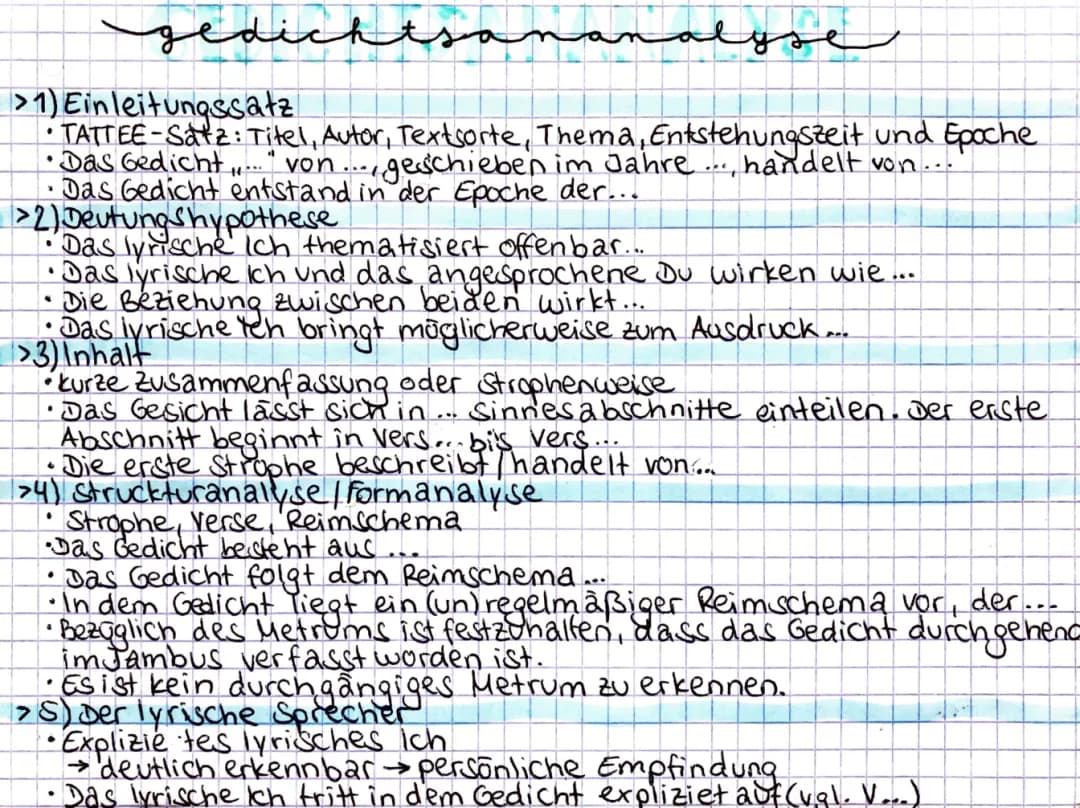 gedichtsananalyse
>1) Einleitungssatz
• TATTEE-Satz: Titel, Autor, Textsorte, Thema, Entstehungszeit und Epoche
• Das Gedicht „..." von ..., geschieben im Jahre ..., handelt von...
• Das Gedicht entstand in der Epoche der...
>2) Deutungshypothese
• Das lyrische Ich thematisiert offenbar...
• Das lyrische Ich und das angesprochene Du wirken wie ...
• Die Beziehung zwischen beiden wirkt...
• Das lyrische Ich bringt möglicherweise zum Ausdruck ...
>3) Inhalt
• kurze Zusammenfassung oder Strophenweise
• Das Gesicht lässt sich in ... Sinnesabschnitte einteilen. Der erste
Abschnitt beginnt in Vers ... bis Vers ...
• Die erste Strophe beschreibt / handelt von...
>4) Struckturanalyse / Formanalyse
• Strophe, Verse, Reimschema
• Das Gedicht besteht aus ...
• Das Gedicht folgt dem Reimschema ...
• In dem Gedicht liegt ein (un)regelmäßiger Reimschema vor, der...
• Bezüglich des Metrums ist festzuhalten, dass das Gedicht durchgehend
im Jambus verfasst worden ist.
• Es ist kein durchgängiges Metrum zu erkennen.
>5) Der lyrische Sprecher
• Explizie tes lyrisches ich
→ deutlich erkennbar → persönliche Empfindung
• Das lyrische Ich tritt in dem Gedicht expliziet auf (vgl. V...)